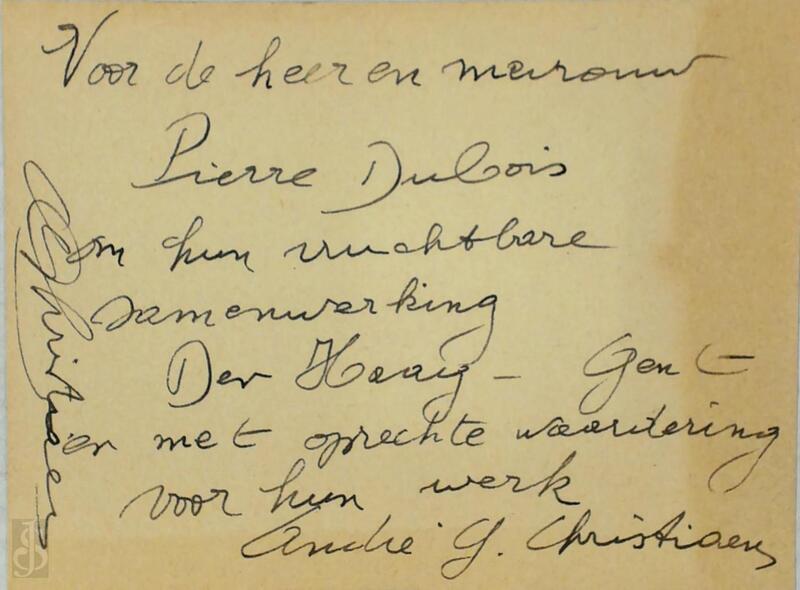 Voor de heer en mevrouw
Pierre Dubois
om hun vruchtbare
samenwerking
Den Haag - Gent
en met oprechte waardering
voor hun werk
André G. Christiaens
Christiaens